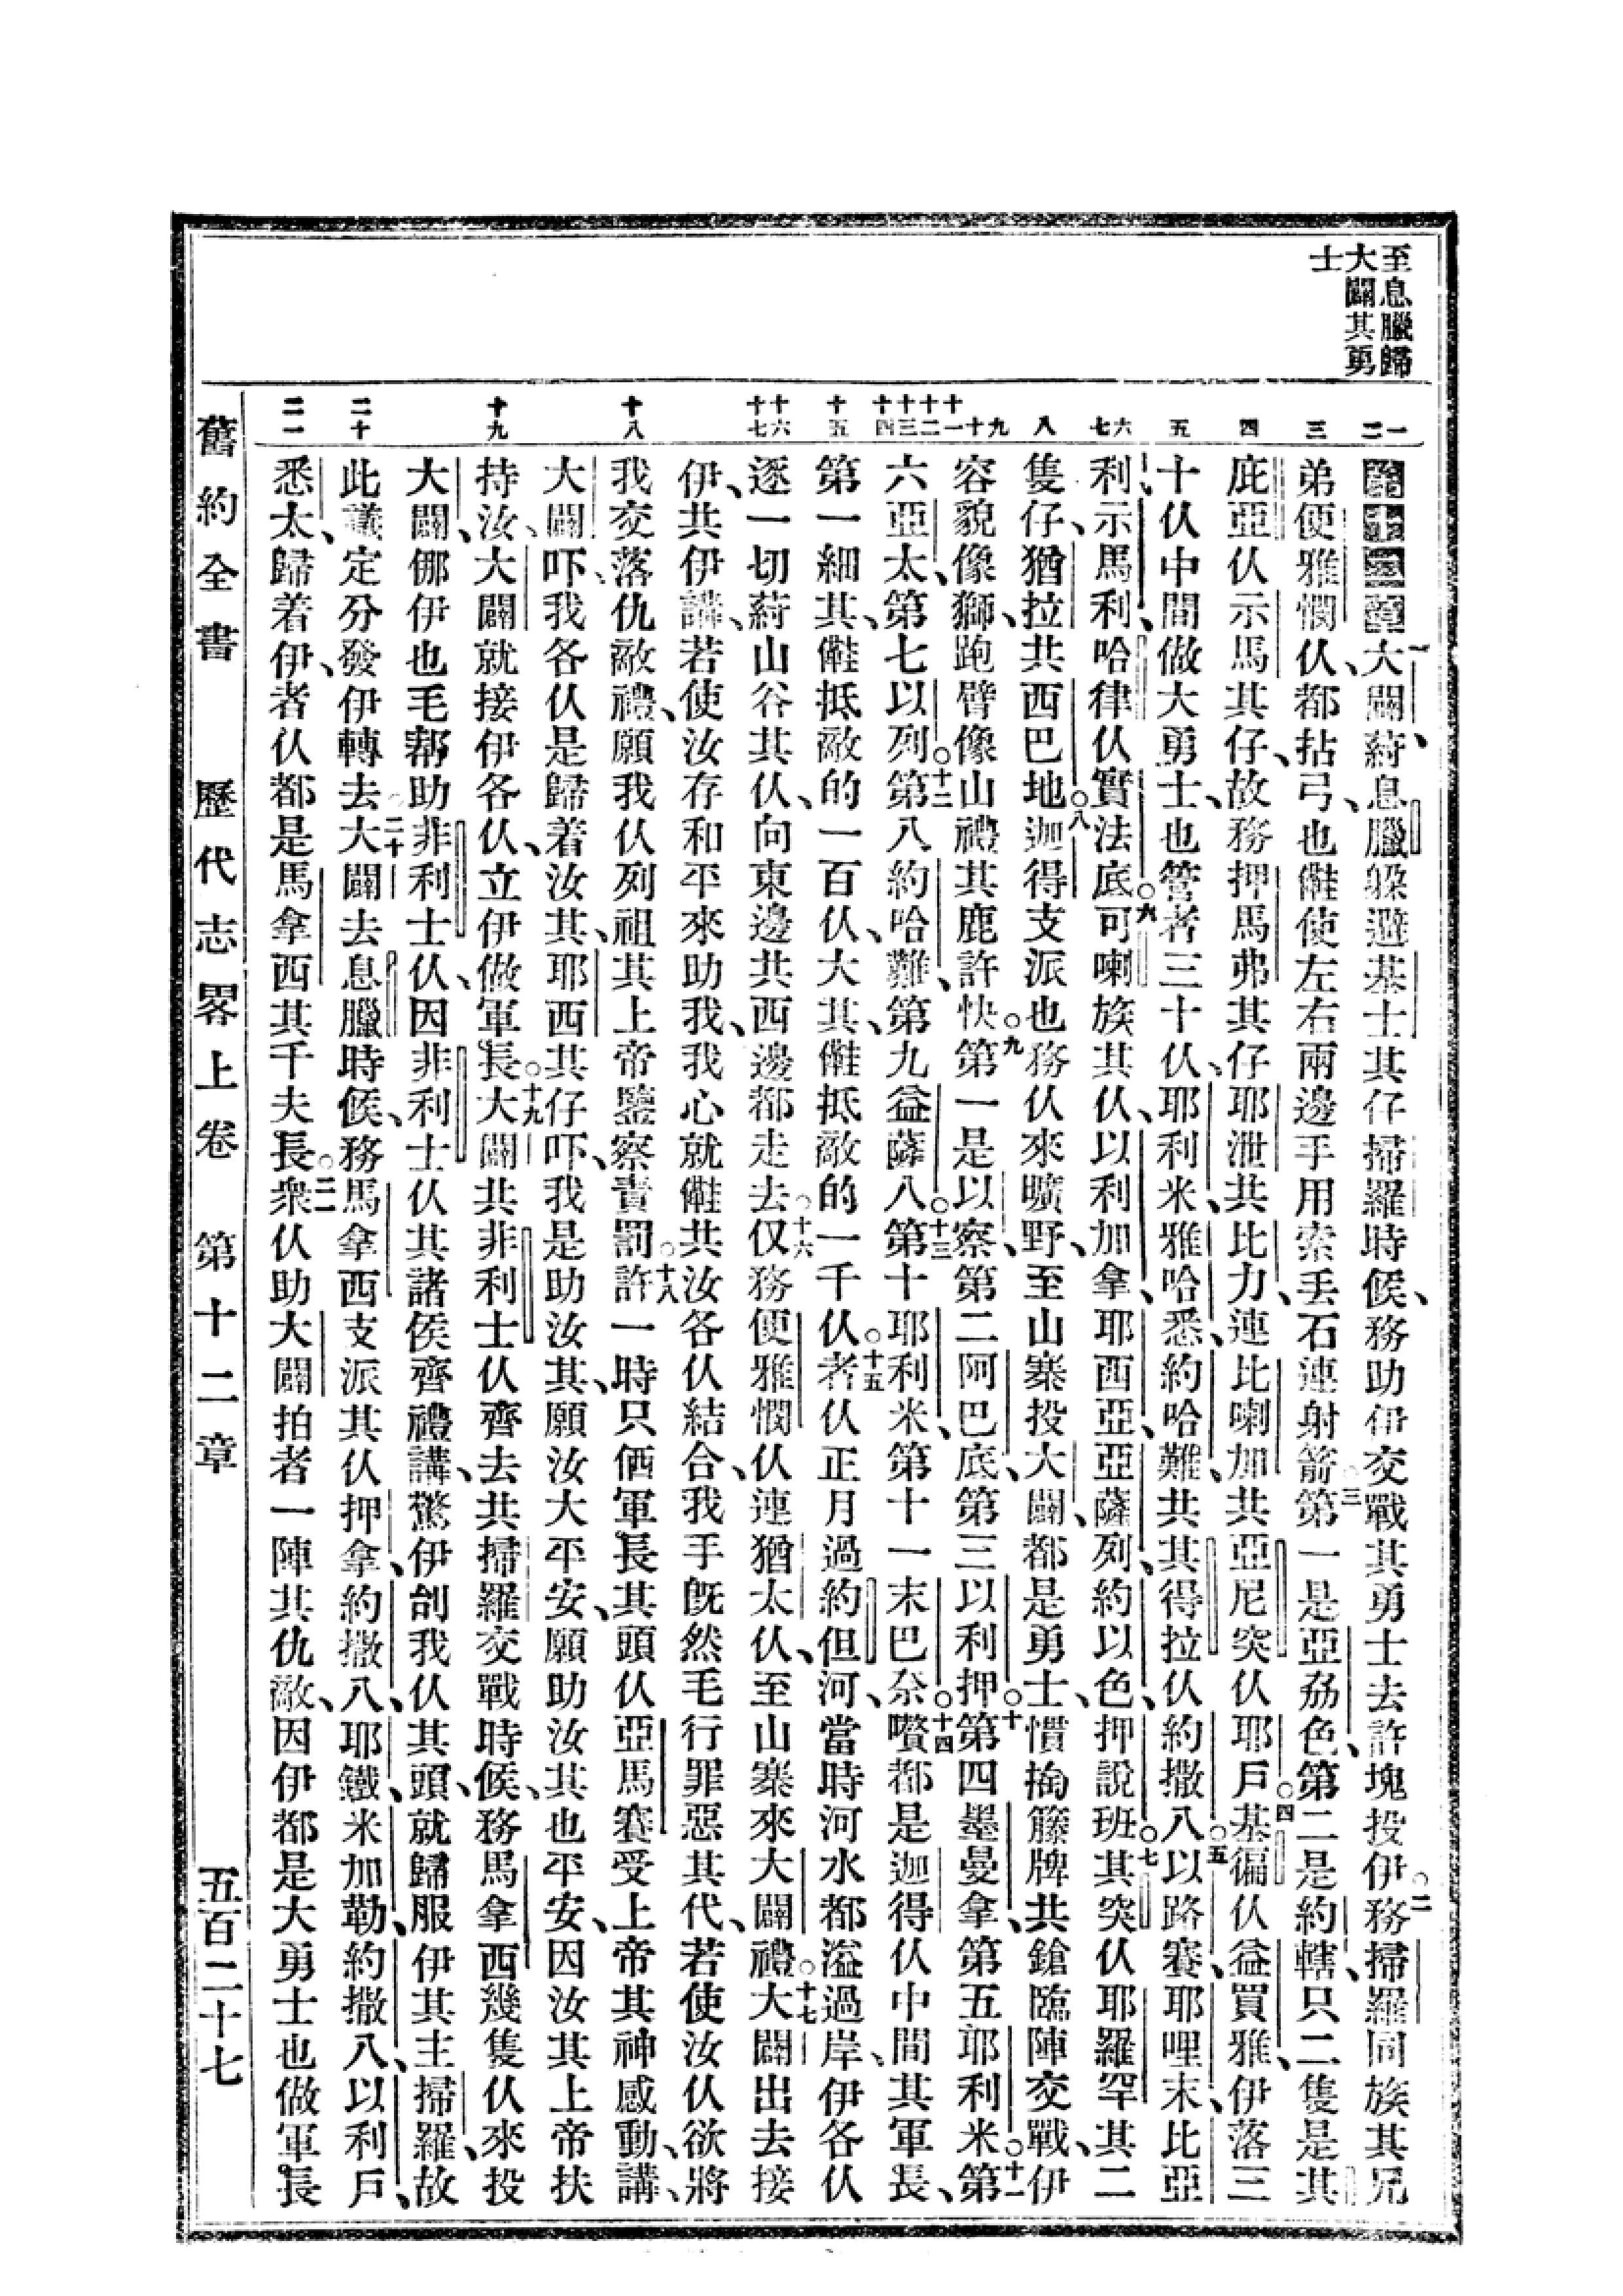 至息臘歸
大闢其勇
士
一 二 三 四 五 六 七 八 九 十 十一 十二 十三 十四 十五 十六 十七 十八 十九 二十 二一
第十二章 一大闢、蒞息臘躲避基士其仔掃羅時候、務助伊交戰其勇士去許塊投伊○二務掃羅同族其兄
弟便雅憫仈、都拈弓、也𠢎使左右兩邊手用索丟石連射箭○三第一是亞矧色、第二是約轄、只二隻是其
庇亞仈示馬其仔、故務押馬弗其仔耶泄共比力、連比喇加共亞尼突仈耶戶○四基徧仈益買雅、伊落三
十仈中間做大勇士、也管者三十仈、耶利米、雅哈悉、約哈難、共其得拉仈約撒八○五以路賽、耶哩末、比亞
利、示馬利、哈律仈實法底○六可喇族其仈、以利加拿、耶西亞、亞薩列、約以色、押說班○七其突仈耶羅罕其二
隻仔、猶拉共西巴地○八迦得支派也務仈來曠野、至山寨投大闢、都是勇士、慣掏籐牌共鎗臨陣交戰、伊
容貌像獅、跑臂像山禮其鹿許快○九第一是以察、第二阿巴底、第三以利押○十第四墨曼拿、第五耶利米○十一第
六亞太、第七以列○十二第八約哈難、第九益薩八○十三第十耶利米、第十一末巴奈○十四嚽都是迦得仈中間其軍長、
第一細其、𠢎抵敵的一百仈、大其、𠢎抵敵的一千仈○十五者仈正月過約但河、當時河水都溢過岸、伊各仈
逐一切蒞山谷其仈、向東邊共西邊都走去○十六仅務便雅憫仈連猶太仈、至山寨來大闢禮○十七大闢出去接
伊、共伊講、若使汝存和平來助我、我心就𠢎共汝各仈結合、我手旣然毛行罪惡其代、若使汝仈欲將
我交落仇敵禮、願我仈列祖其上帝鑒察責罰○十八許一時只仴軍長其頭仈亞馬賽受上帝其神感動、講、
大闢吓、我各仈是歸着汝其、耶西其仔吓、我是助汝其、願汝大平安、願助汝其也平安、因汝其上帝扶
持汝、大闢就接伊各仈、立伊做軍長○十九大闢共非利士仈齊去共掃羅交戰時候、務馬拿西幾隻仈來投
大闢、倻伊也毛幫助非利士仈、因非利士仈其諸侯齊禮講、驚伊刣我仈其頭、就歸服伊其主掃羅、故
此議定分發伊轉去○二十大闢去息臘時候、務馬拿西支派其仈押拿、約撒八、耶鐵、米加勒、約撒八、以利戶、
悉太、歸着伊、者仈都是馬拿西其千夫長○二一衆仈助大闢拍者一陣其仇敵、因伊都是大勇士也做軍長
舊約全書 歷代志畧上卷 第十二章 五百二十七